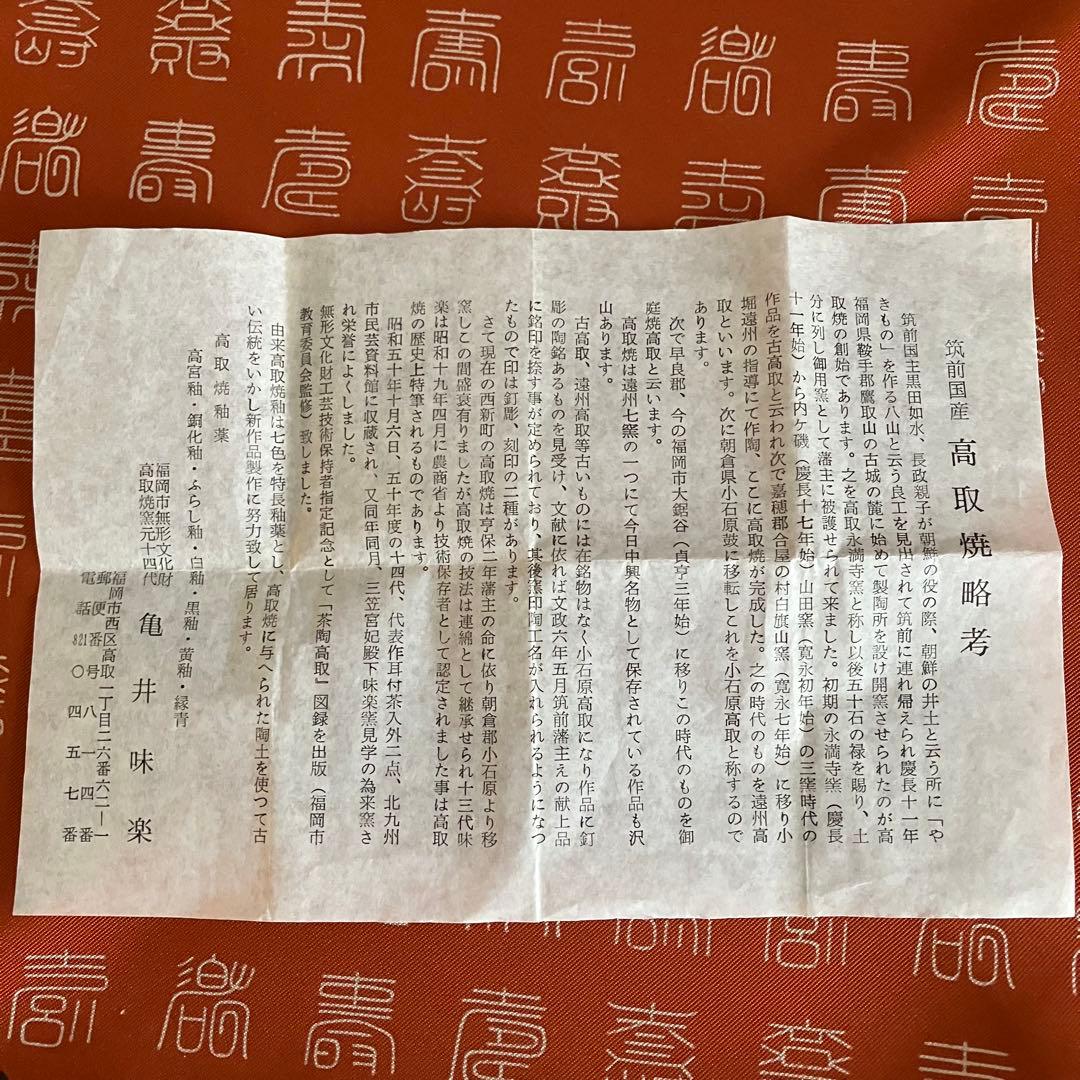 筑前国産 高取焼略考
筑前国主黒田如水、長政親子が朝鮮の役の際、朝鮮の井土と云う所に「や
きもの」を作る八山と云う良工を見出されて筑前に連れ帰えられ慶長十一年
福岡県鞍手郡鷹取山の古城の麓に始めて製陶所を設け開窯させられたのが高
取焼の創始であります。之を高取永満寺窯と称し以後五十石の禄を賜り、土
分に列し御用窯として藩主に被護せられて来ました。初期の永満寺窯（慶長
十一年始）から内ケ磯（慶長十七年始）山田窯（寛永初年始）の三窯時代の
作品を古高取と云われ次で嘉穂郡合屋の村白旗山窯（寛永七年始）に移り小
堀遠州の指導にて作陶、ここに高取焼が完成した。之の時代のものを遠州高
取といいます。次に朝倉県小石原鼓に移転しこれを小石原高取と称するので
あります。
次で早良郡、今の福岡市大鋸谷（貞亨三年始）に移りこの時代のものを御
庭焼高取と云います。
高取焼は遠州七窯の一つにて今日中興名物として保存されている作品も沢
山あります。
古高取、遠州高取等古いものには在銘物はなく小石原高取になり作品に釘
彫の陶銘あるものを見受け、文献に依れば文政六年五月筑前藩主えの献上品
に銘印を捺す事が定められており、其後窯印陶工名が入れられるようになつ
たもので印は釘彫、刻印の二種があります。
さて現在の西新町の高取焼は亨保二年藩主の命に依り朝倉郡小石原より移
窯しこの間盛衰有りましたが高取焼の技法は連綿として継承せられ十三代味
楽は昭和十九年四月に農商省より技術保存者として認定されました事は高取
焼の歴史上特筆されるものであります。
昭和五十年十月六日、五十年度の十四代、代表作耳付茶入外二点、北九州
市民芸資料館に収蔵され、又同年同月、三笠宮妃殿下味楽窯見学の為来窯さ
れ栄誉によくしました。
無形文化財工芸技術保持者指定記念として「茶陶高取」図録を出版（福岡市
教育委員会監修）致しました。
由来高取焼釉は七色を特長釉薬とし、高取焼に与へられた陶土を使つて古
い伝統をいかし新作品製作に努力致して居ります。
高取焼釉薬
高宮釉・銅化釉・ふらし釉・白釉・黒釉・黄釉・緑青
福岡市無形文化財
高取焼窯元十四代 亀井味楽
福岡市西区高取一丁目二六番六二ー一
郵便番号 八一四
電話 821 〇四五七番